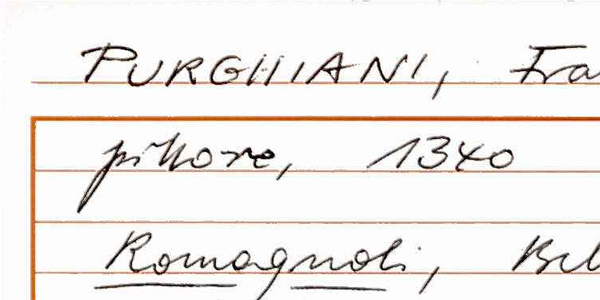 PURGHIANI, Fra
pittore, 1340
Romagnoli, Bel